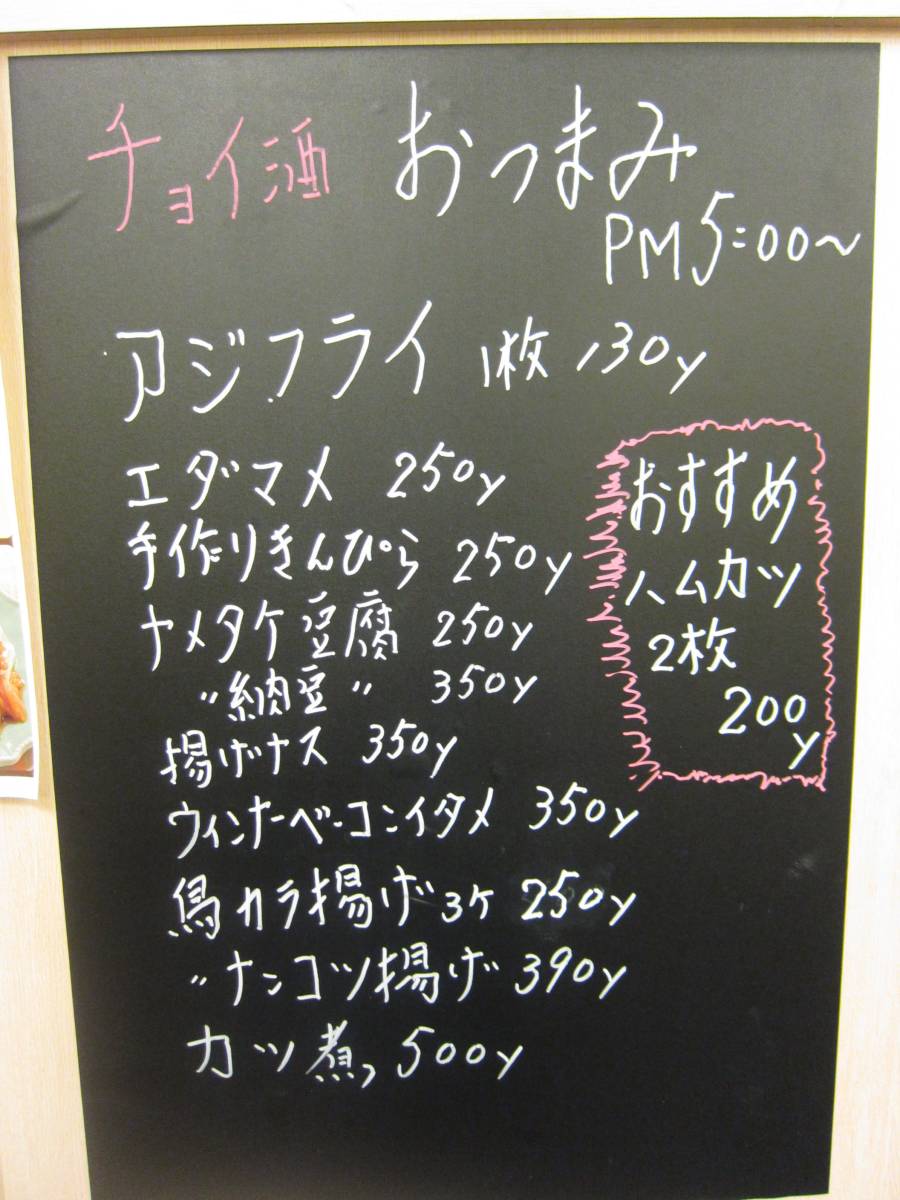 チョイ酒 おつまみ
PM5:00〜
アジフライ 1枚 130y
エダマメ 250y
手作りきんぴら 250y
ナメタケ豆腐 250y
〃納豆〃 350y
揚げナス 350y
ウィンナーベーコンイタメ 350y
鳥カラ揚げ 3ケ 250y
〃ナンコツ揚げ 390y
カツ煮 500y
おすすめ
ハムカツ
2枚
200
y